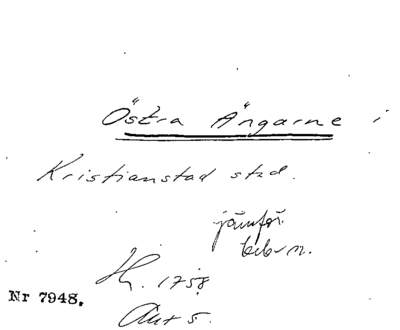 Östra Ängarne i
Kristianstad stad.
jämför.
H. 1758
Nr 7948.
Akt 5.